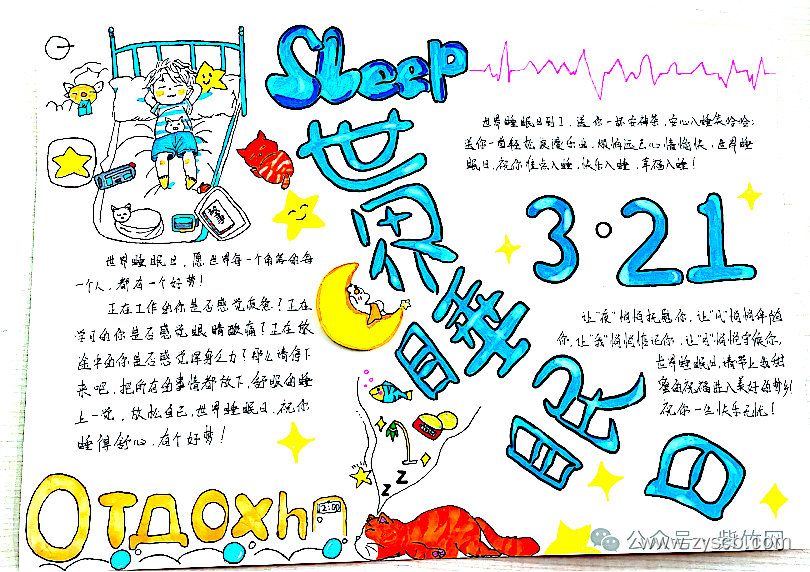 Sleep
世界睡眠日
3·21
世界睡眠日到了,送你一杯安神茶,安心入睡笑哈哈;
送你一首轻松浪漫乐曲,烦恼远去心情愉快,世界睡
眠日,祝你准点入睡,快乐入睡,幸福入睡!
世界睡眠日,愿世界每一个角落的每
一个人,都有一个好梦!
正在工作的你是否感觉疲惫?正在
学习的你是否感觉眼睛酸痛?正在旅
途中的你是否感觉浑身乏力?那么请停下
来吧,把所有的事情都放下,舒服的睡
上一觉,放松自己,世界睡眠日,祝你
睡得舒心,有个好梦!
让"夜"悄悄抚慰你,让"风"悄悄伴随
你,让"我"悄悄惦记你,让"月"悄悄守候你,
世界睡眠日,请带上我甜
蜜的祝福进入美好的梦乡
祝你一生快乐无忧!
z z
12:00
Отдохнп
公众号 紫竹网
www.zyscb.com